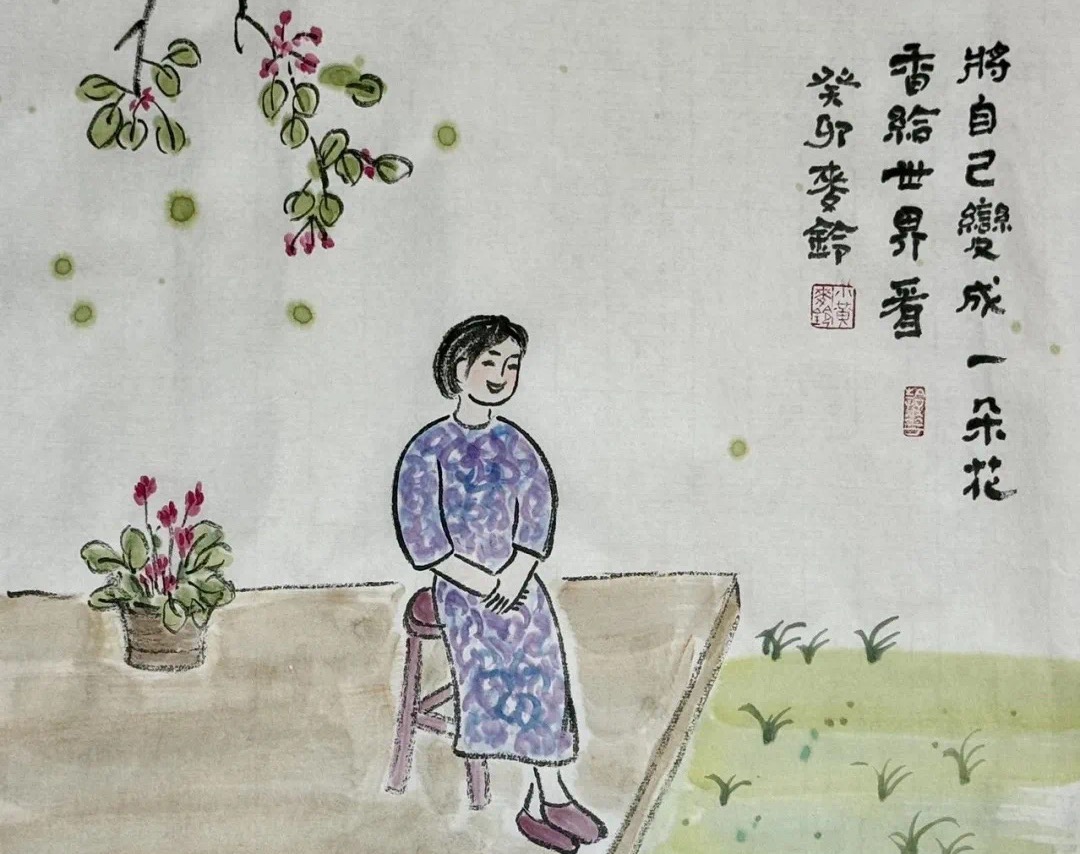 將自己變成一朵花
香給世界看
癸卯麥鈴